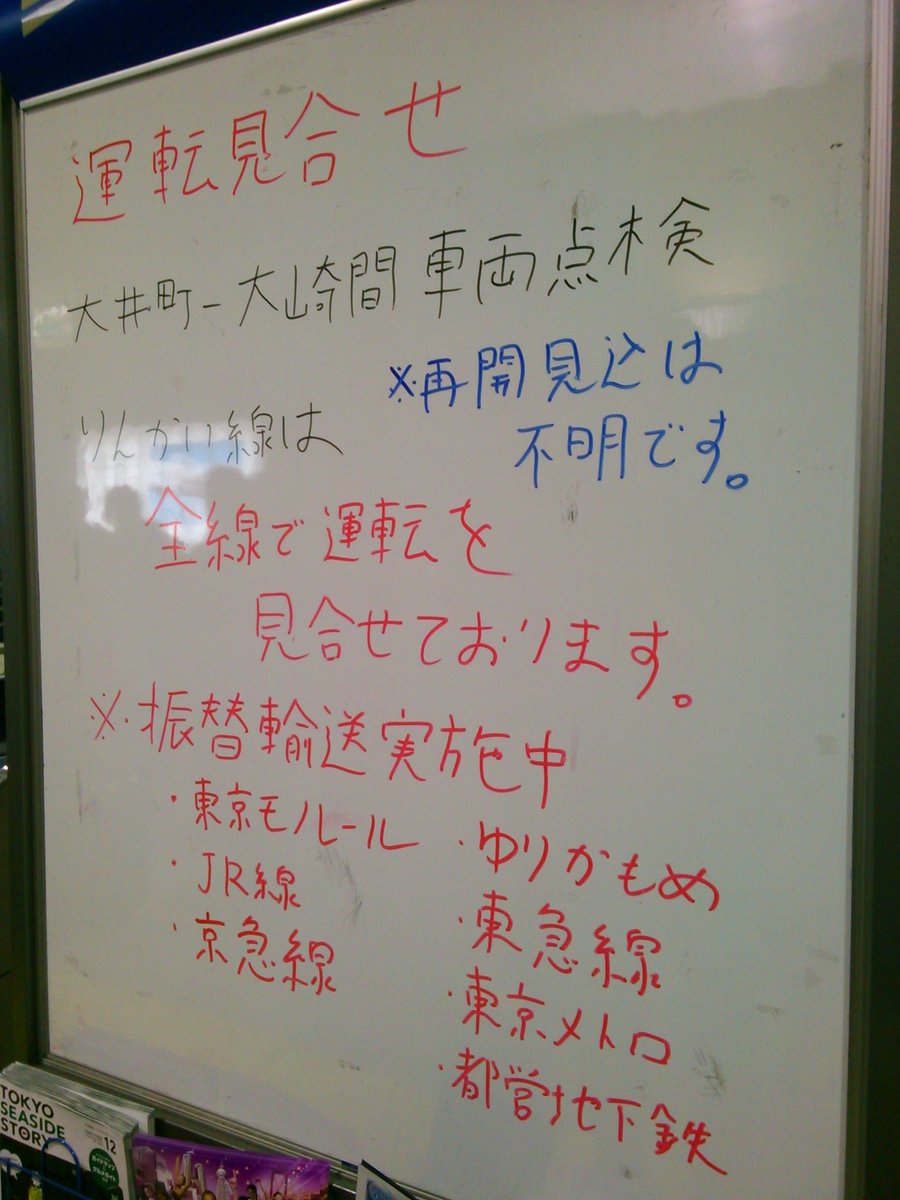 運転見合せ
大井町-大崎間 車両点検
※再開見込は
不明です。
りんかい線は
全線で運転を
見合せております。
※振替輸送実施中
・東京モノレール
・JR線
・京急線
・ゆりかもめ
・東急線
・東京メトロ
・都営地下鉄
TOKYO
SEASIDE
STORY
12